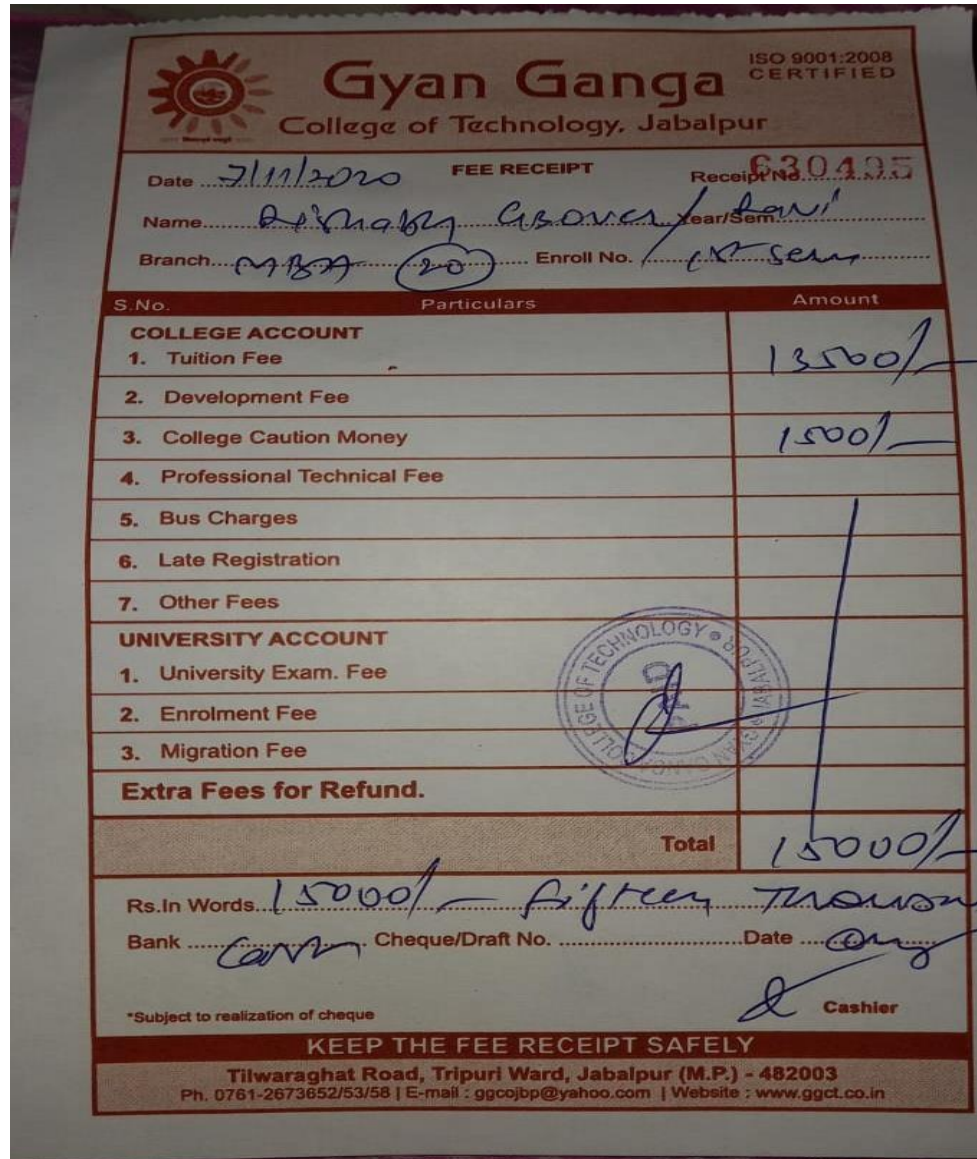 Gyan Ganga
ISO 9001:2008
CERTIFIED
College of Technology, Jabalpur
FEE RECEIPT
Date 7/11/2020
Receipt No. 630495
Name Rishabh Grover / Ravi
Year/Sem.
Branch MBA (20) Enroll No. 1st Sem
S.No. Particulars Amount
COLLEGE ACCOUNT
1. Tuition Fee 13500/-
2. Development Fee
3. College Caution Money 1500/-
4. Professional Technical Fee
5. Bus Charges
6. Late Registration
7. Other Fees
UNIVERSITY ACCOUNT
1. University Exam. Fee
2. Enrolment Fee
3. Migration Fee
GYAN GANGA COLLEGE OF TECHNOLOGY JABALPUR
Extra Fees for Refund.
Total 15000/-
Rs.In Words 15000/- Fifteen Thousan
Bank Cash Cheque/Draft No. Date Only
*Subject to realization of cheque
Cashier
KEEP THE FEE RECEIPT SAFELY
Tilwaraghat Road, Tripuri Ward, Jabalpur (M.P.) - 482003
Ph. 0761-2673652/53/58 | E-mail : ggcojbp@yahoo.com | Website : www.ggct.co.in